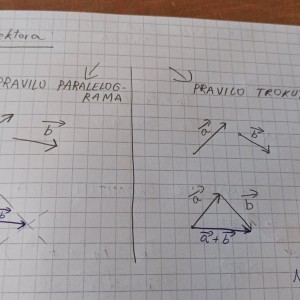 ektora
PRAVILO PARALELOG-
RAMA
b
b
PRAVILO TROKU
a
b
a
b
a + b
N